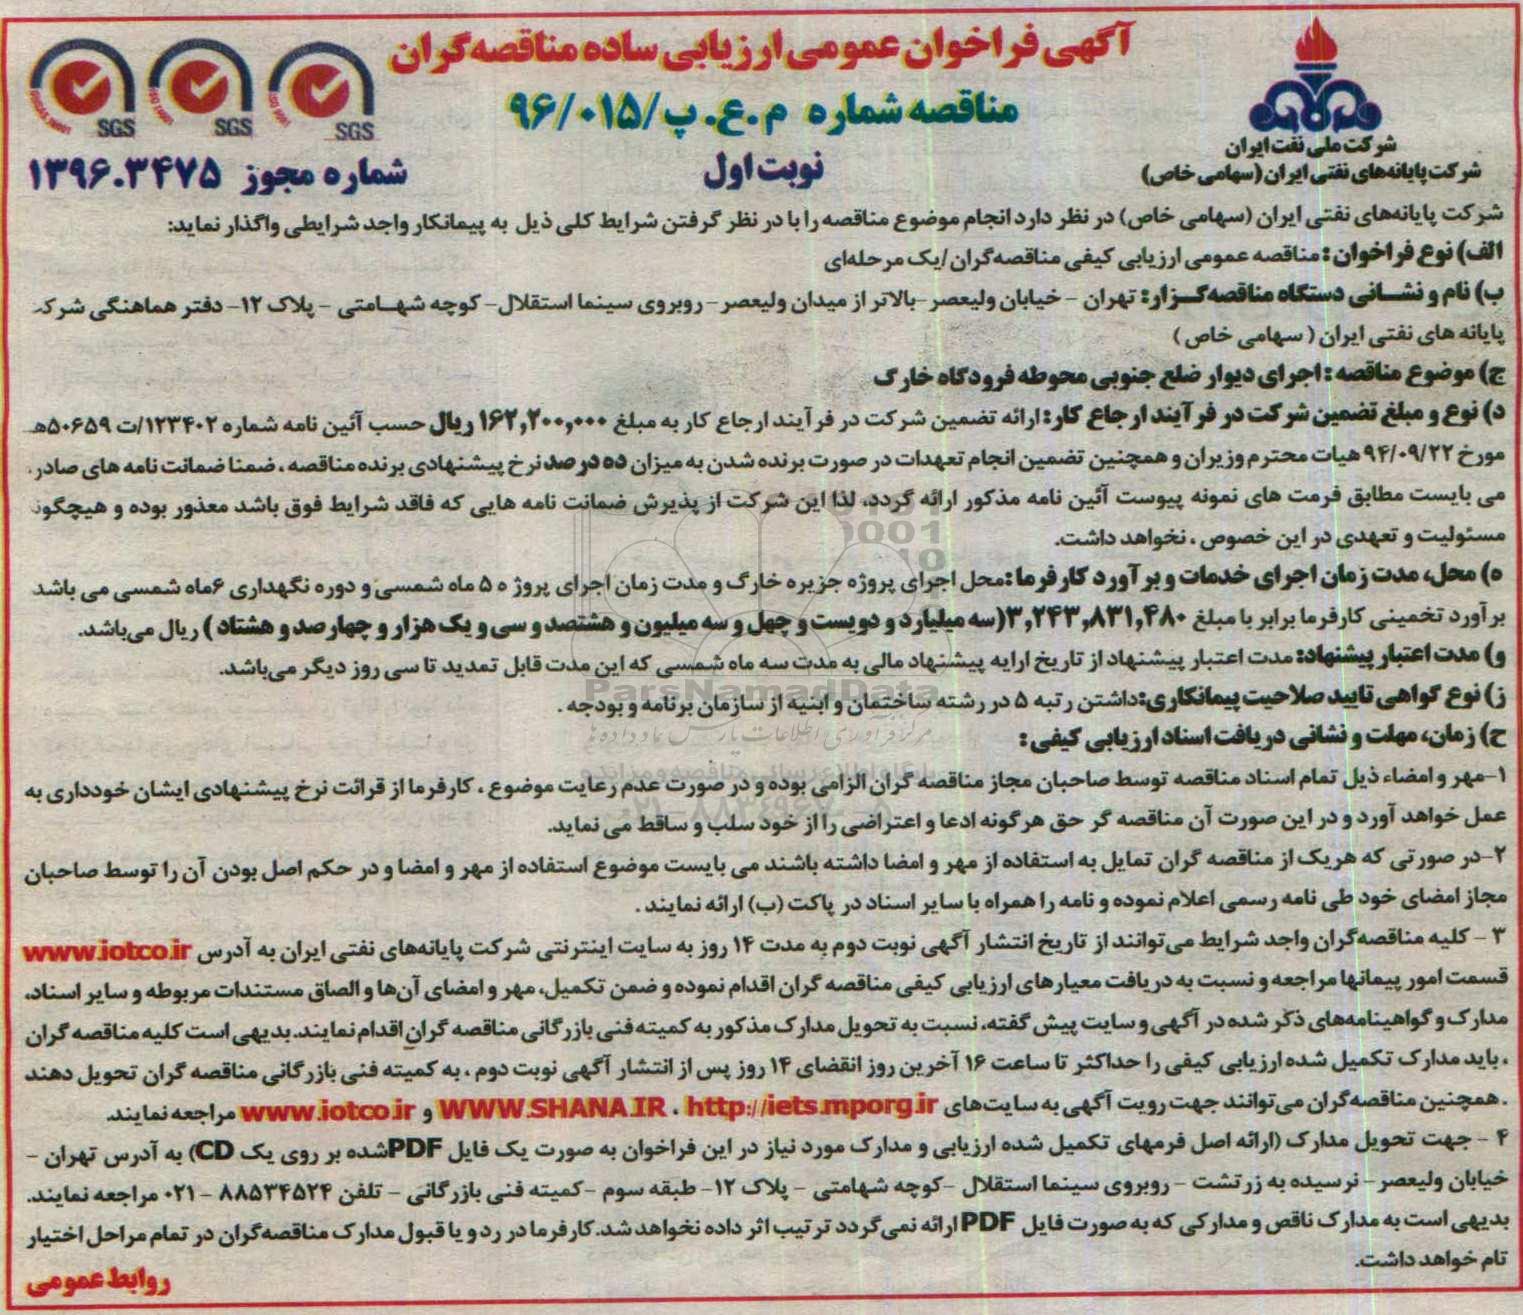 آگهی فراخوان عمومی ارزیابی ساده مناقصه‌گران
مناقصه شماره م.ع.پ/۹۶/۰۱۵
نوبت اول
شرکت ملی نفت ایران
شرکت پایانه‌های نفتی ایران (سهامی خاص)
SGS
SGS
SGS
شماره مجوز ۱۳۹۶.۳۴۷۵
شرکت پایانه‌های نفتی ایران (سهامی خاص) در نظر دارد انجام موضوع مناقصه را با در نظر گرفتن شرایط کلی ذیل به پیمانکار واجد شرایطی واگذار نماید:
الف) نوع فراخوان: مناقصه عمومی ارزیابی کیفی مناقصه‌گران/یک مرحله‌ای
ب) نام و نشانی دستگاه مناقصه‌گزار: تهران - خیابان ولیعصر -بالاتر از میدان ولیعصر - روبروی سینما استقلال- کوچه شهامتی - پلاک ۱۲- دفتر هماهنگی شرکت
پایانه های نفتی ایران ( سهامی خاص )
ج) موضوع مناقصه: اجرای دیوار ضلع جنوبی محوطه فرودگاه خارگ
د) نوع و مبلغ تضمین شرکت در فرآیند ارجاع کار: ارائه تضمین شرکت در فرآیند ارجاع کار به مبلغ ۱۶۲,۲۰۰,۰۰۰ ریال حسب آئین نامه شماره ۱۲۳۴۰۲/ت ۵۰۶۵۹هـ
مورخ ۹۴/۰۹/۲۲ هیات محترم وزیران و همچنین تضمین انجام تعهدات در صورت برنده شدن به میزان ده درصد نرخ پیشنهادی برنده مناقصه ، ضمنا ضمانت نامه های صادره
می بایست مطابق فرمت های نمونه پیوست آئین نامه مذکور ارائه گردد، لذا این شرکت از پذیرش ضمانت نامه هایی که فاقد شرایط فوق باشد معذور بوده و هیچگونه
مسئولیت و تعهدی در این خصوص ، نخواهد داشت.
ه) محل، مدت زمان اجرای خدمات و برآورد کارفرما: محل اجرای پروژه جزیره خارگ و مدت زمان اجرای پروژ ه ۵ ماه شمسی و دوره نگهداری ۶ماه شمسی می باشد
برآورد تخمینی کارفرما برابر با مبلغ ۳,۲۴۳,۸۳۱,۴۸۰(سه میلیارد و دویست و چهل و سه میلیون و هشتصد و سی و یک هزار و چهارصد و هشتاد ) ریال می‌باشد.
و) مدت اعتبار پیشنهاد: مدت اعتبار پیشنهاد از تاریخ ارایه پیشنهاد مالی به مدت سه ماه شمسی که این مدت قابل تمدید تا سی روز دیگر می‌باشد.
ز) نوع گواهی تایید صلاحیت پیمانکاری: داشتن رتبه ۵ در رشته ساختمان و ابنیه از سازمان برنامه و بودجه .
ح) زمان، مهلت و نشانی دریافت اسناد ارزیابی کیفی :
۱-مهر و امضاء ذیل تمام اسناد مناقصه توسط صاحبان مجاز مناقصه گران الزامی بوده و در صورت عدم رعایت موضوع ، کارفرما از قرائت نرخ پیشنهادی ایشان خودداری به
عمل خواهد آورد و در این صورت آن مناقصه گر حق هرگونه ادعا و اعتراضی را از خود سلب و ساقط می نماید.
۲-در صورتی که هریک از مناقصه گران تمایل به استفاده از مهر و امضا داشته باشند می بایست موضوع استفاده از مهر و امضا و در حکم اصل بودن آن را توسط صاحبان
مجاز امضای خود طی نامه رسمی اعلام نموده و نامه را همراه با سایر اسناد در پاکت (ب) ارائه نمایند .
۳ - کلیه مناقصه‌گران واجد شرایط می‌توانند از تاریخ انتشار آگهی نوبت دوم به مدت ۱۴ روز به سایت اینترنتی شرکت پایانه‌های نفتی ایران به آدرس www.iotco.ir
قسمت امور پیمانها مراجعه و نسبت به دریافت معیارهای ارزیابی کیفی مناقصه گران اقدام نموده و ضمن تکمیل، مهر و امضای آن‌ها و الصاق مستندات مربوطه و سایر اسناد،
مدارک و گواهینامه‌های ذکر شده در آگهی و سایت پیش گفته، نسبت به تحویل مدارک مذکور به کمیته فنی بازرگانی مناقصه گران اقدام نمایند. بدیهی است کلیه مناقصه گران
، باید مدارک تکمیل شده ارزیابی کیفی را حداکثر تا ساعت ۱۶ آخرین روز انقضای ۱۴ روز پس از انتشار آگهی نوبت دوم ، به کمیته فنی بازرگانی مناقصه گران تحویل دهند
. همچنین مناقصه‌گران می‌توانند جهت رویت آگهی به سایت‌های http://iets.mporg.ir ، WWW.SHANA.IR و www.iotco.ir مراجعه نمایند.
۴ - جهت تحویل مدارک (ارائه اصل فرمهای تکمیل شده ارزیابی و مدارک مورد نیاز در این فراخوان به صورت یک فایل PDFشده بر روی یک CD) به آدرس تهران -
خیابان ولیعصر - نرسیده به زرتشت - روبروی سینما استقلال -کوچه شهامتی - پلاک ۱۲- طبقه سوم -کمیته فنی بازرگانی - تلفن ۸۸۵۳۴۵۲۴ -۰۲۱ مراجعه نمایند.
بدیهی است به مدارک ناقص و مدارکی که به صورت فایل PDF ارائه نمی‌گردد ترتیب اثر داده نخواهد شد. کارفرما در رد و یا قبول مدارک مناقصه‌گران در تمام مراحل اختیار
تام خواهد داشت.
روابط عمومی
ParsNamadData